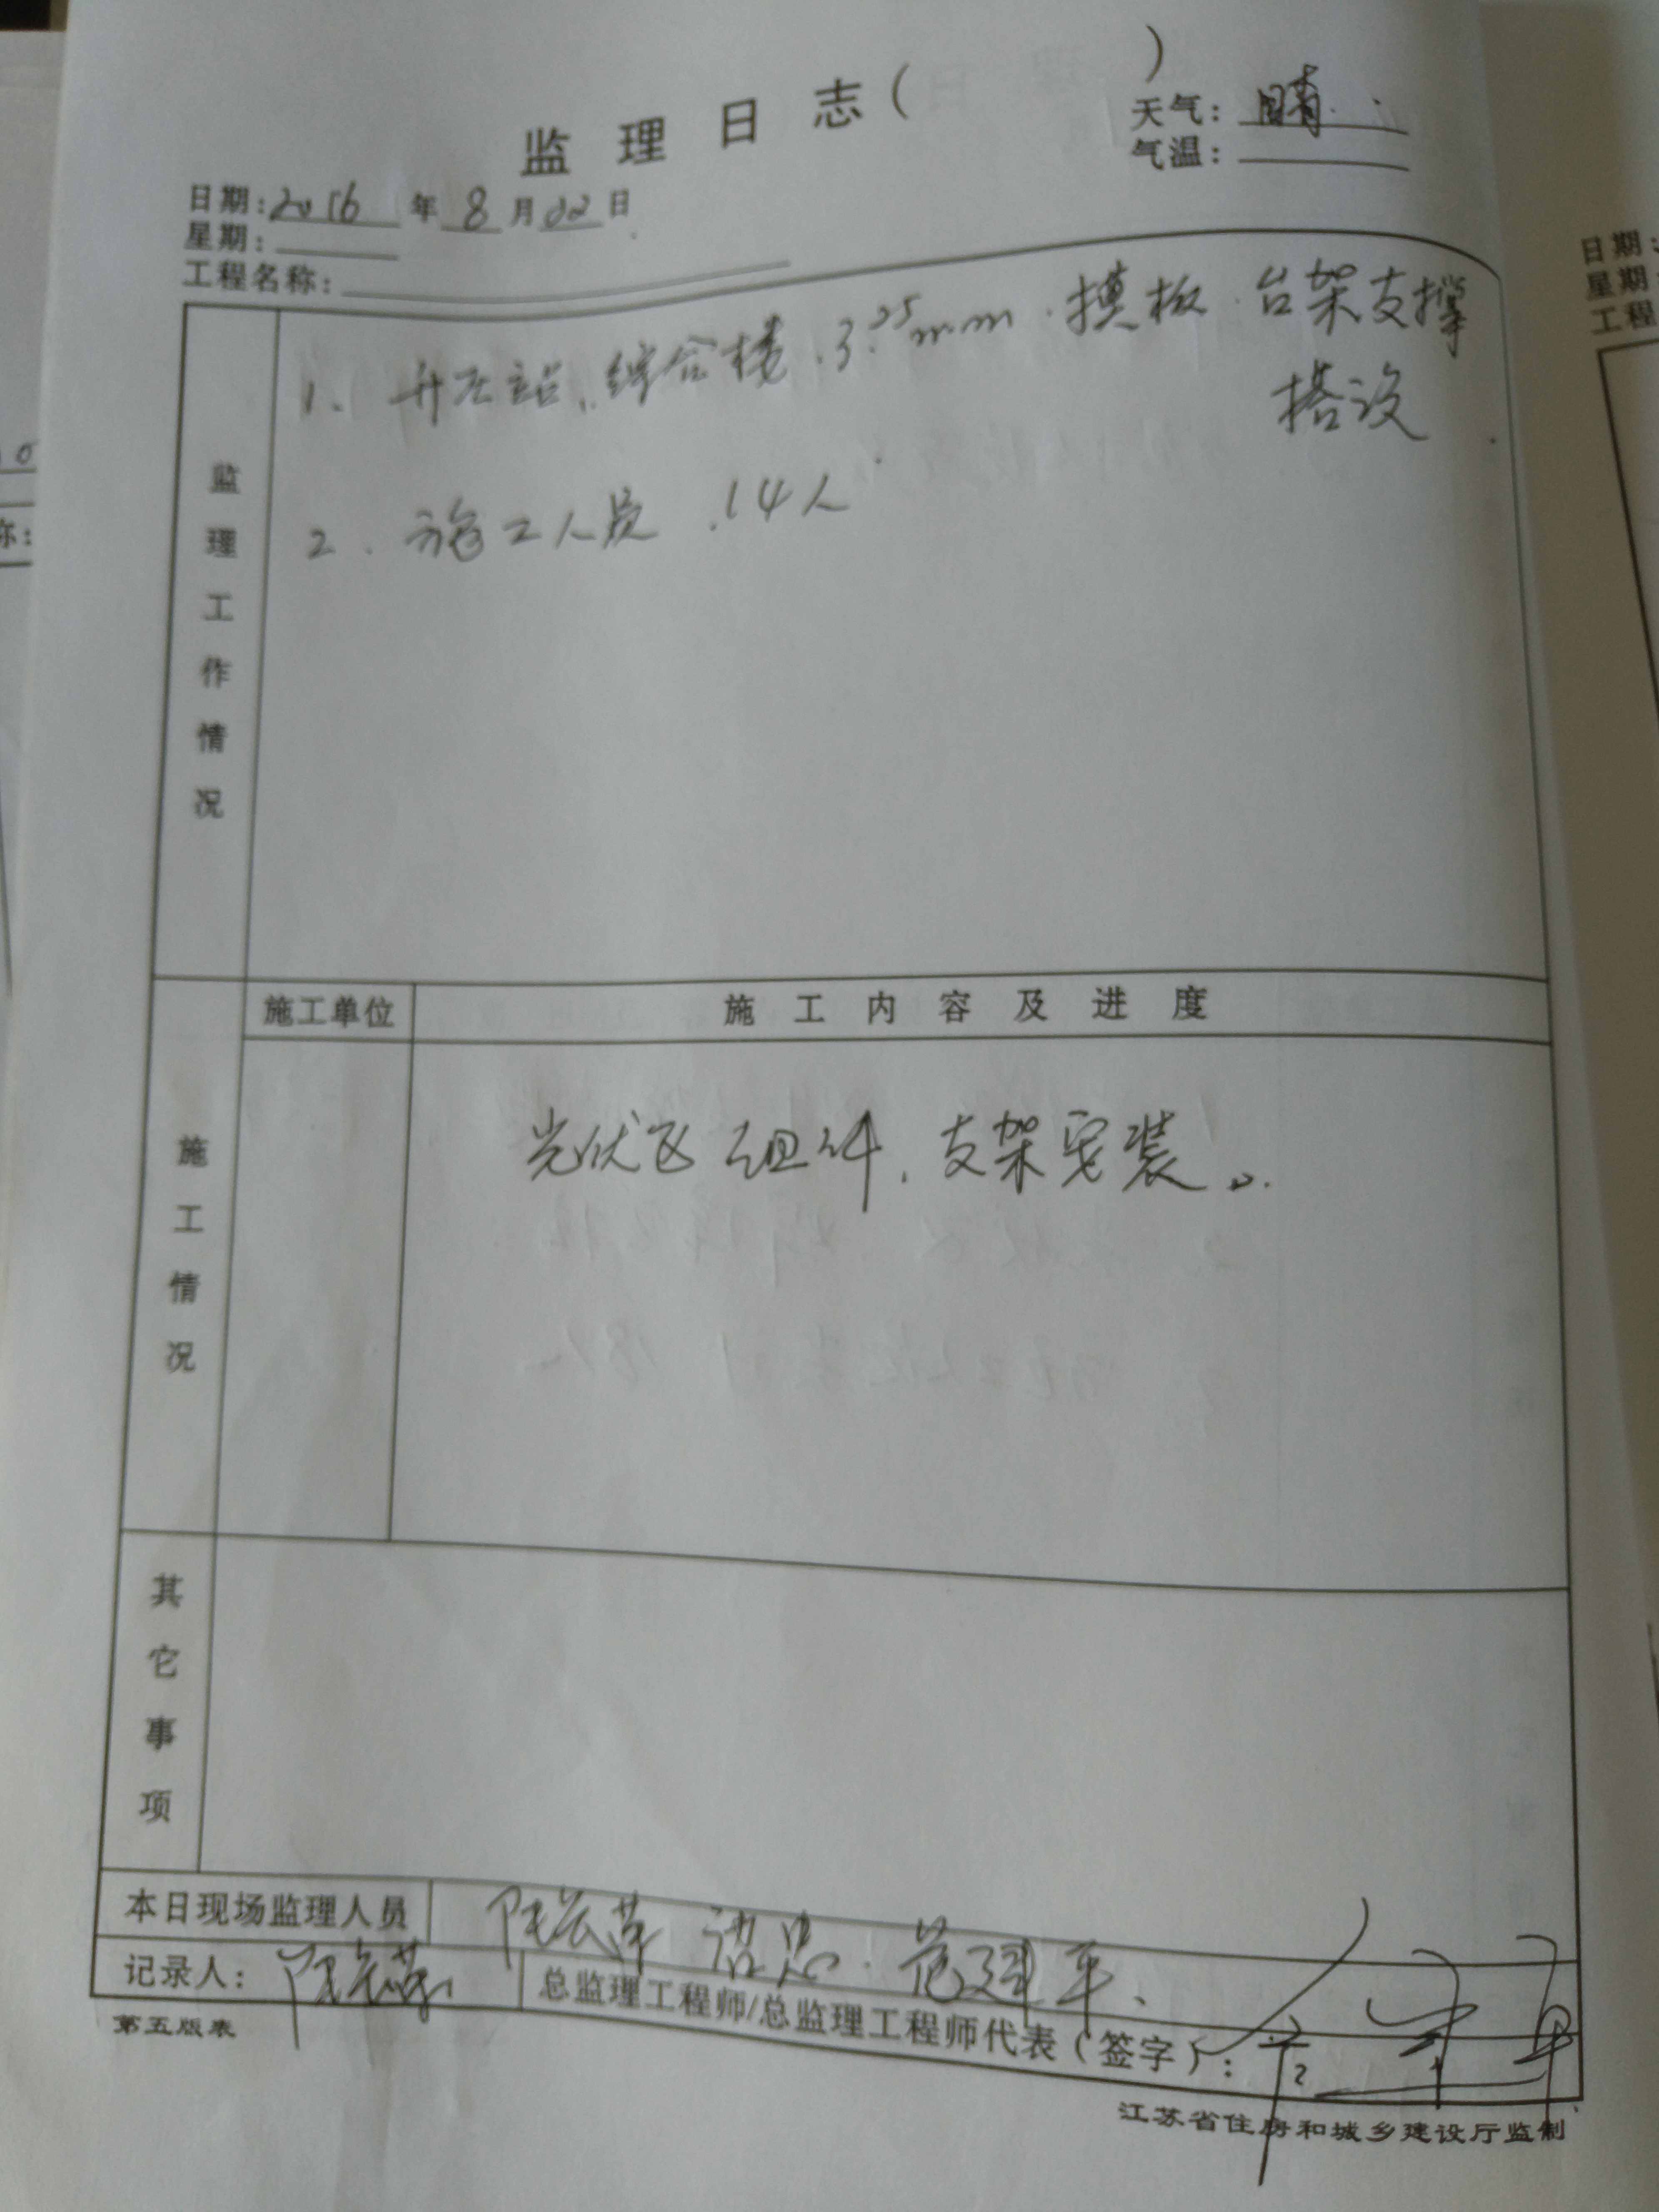 监理日志（ ）
天气：晴
气温：
日期：2016年8月02日
星期：
工程名称：
监理工作情况
1. 升压站、综合楼.3.25mm.摸板.台架支撑
搭设
2. 施工人员.14人
施工情况
施工单位
施工内容及进度
光伏区组件、支架安装。
其它事项
本日现场监理人员 陆宏革 诸忠 范建平、
记录人：陆宏革
总监理工程师/总监理工程师代表（签字）：
第五版表
江苏省住房和城乡建设厅监制
日期：
星期：
工程
称：